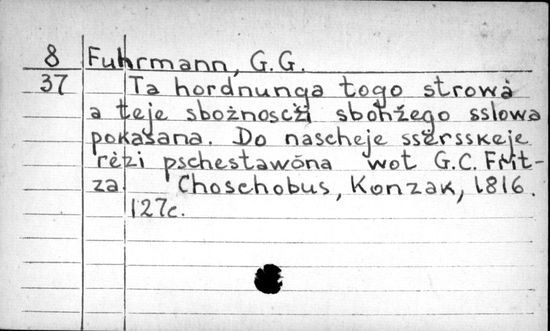 8 Fuhrmann, G.G.
37 Ta hordnunga togo strowà
a teje sbožnosćži sbohžego sslowa
pokašana. Do nascheje ssèrsskeje
rèži pschestawóna wot G.C. Frit-
za. Choschobus, Konzak, 1816.
127c.